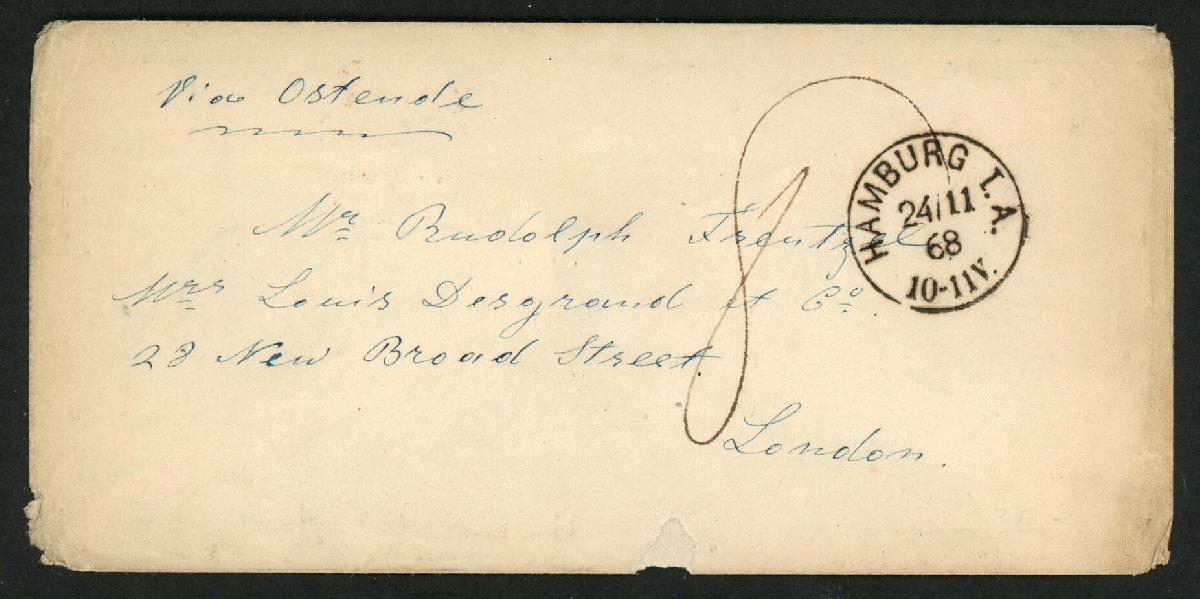 Via Ostende
Mr Rudolph Frentzel
Mrrs Louis Desgrand et Co.
28 New Broad Street
London.
8
HAMBURG I. A.
24/11
68
10-11V.